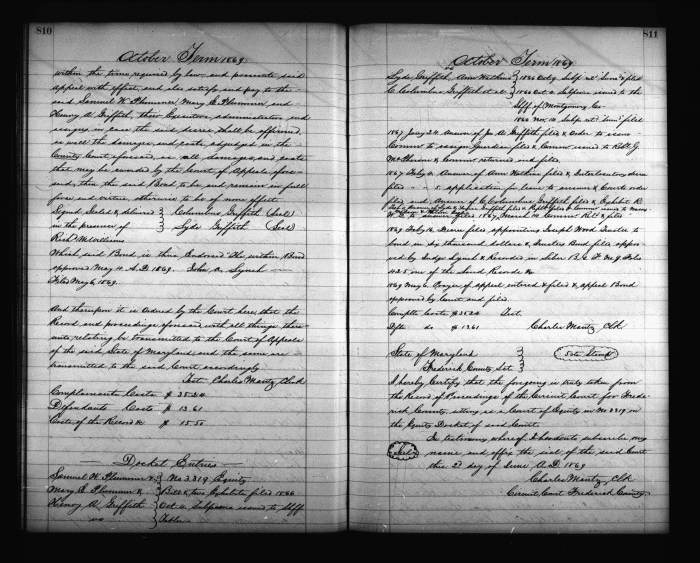 810
October Term 1869
within the time required by law and prosecute said
appeal with effect, and also satisfy and pay to the
said Samuel W. Plummer, Mary E. Plummer and
Henry A. Griffith, their Executors, administrators and
assigns in case the said decree shall be affirmed,
as well the damages and costs, adjudged in the
County Court aforesaid, as all damages and costs
that may be awarded by the Court of Appeals afore-
said, then the said Bond to be and remain in full
force and virtue otherwise to be of none effect
Signed Sealed & delivered } Columbus Griffith (Seal)
in the presence of } Lyde Griffith (Seal)
Rich'd Williams
Which said Bond is thus Endorsed The within Bond
approved May 10 A.D 1869. John A. Lynch
Filed May 6, 1869.
And thereupon it is ordered by the Court here, that the
Record and proceedings aforesaid with all things there-
unto relating be transmitted to the Court of Appeals
of the said State of Maryland, and the same are
transmitted to the said Court accordingly
Test Charles Mantz Clerk
Complainants Costs $ 35.24
Defendants Costs $ 13.61
Costs of the Record &c $ 15.50
Docket Entries
Samuel W. Plummer & } No 3219 Equity
Mary E. Plummer & } Bill & two Exhibits filed 1866
Henry A. Griffith } Oct 4. Subpoena issued to Shff
vs }
811
October Term 1869
Lyde Griffith, Ann Wathen } 1866 Oct 9. Subp ret "Sum'd" & filed
C Columbus Griffith et al } 1866 Oct Subpoena issued to the
Shff of Montgomery Co
1866 Nov 10 Subp. ret "Sum'd" filed
1867 Jany 24 Answer of Griffith filed & Order to issue
Comn to assign Guardian filed & Comn issued to Rob't G.
& Comn returned and filed
1867 Feby Answer of Ann Wathen filed & Interlocutory decree
filed " " application for leave to answer & Courts order
filed and Answer of C Columbus Griffith filed & Exhibit R
answer filed 1867, March Comns Ret & filed
1869 Feby 16. Decree filed appointing Joseph Wood Trustee to
bond in six thousand dollars & Trustees Bond filed appro-
ved by Judge Lynch & Recorded in Liber folio
425 one of the Land Records &c
1869 May 6. Prayer of appeal entered & filed & appeal Bond
approved by Court and filed
Complts Costs $ 35.24 Test.
Dfts do $ 13.61 Charles Mantz Clk
State of Maryland }
Frederick County Sct } 50cts Stamp
I hereby Certify that the foregoing is truly taken from
the Record of Proceedings of the Circuit Court for Frede-
rick County, sitting as a Court of Equity in No 3219 on
the Equity Docket of said Court.
In testimony whereof I hereunto subscribe my
(Seal) name and affix the seal of the said Court
this 2d day of June A.D 1869
Charles Mantz, Clk
Circuit Court Frederick County.